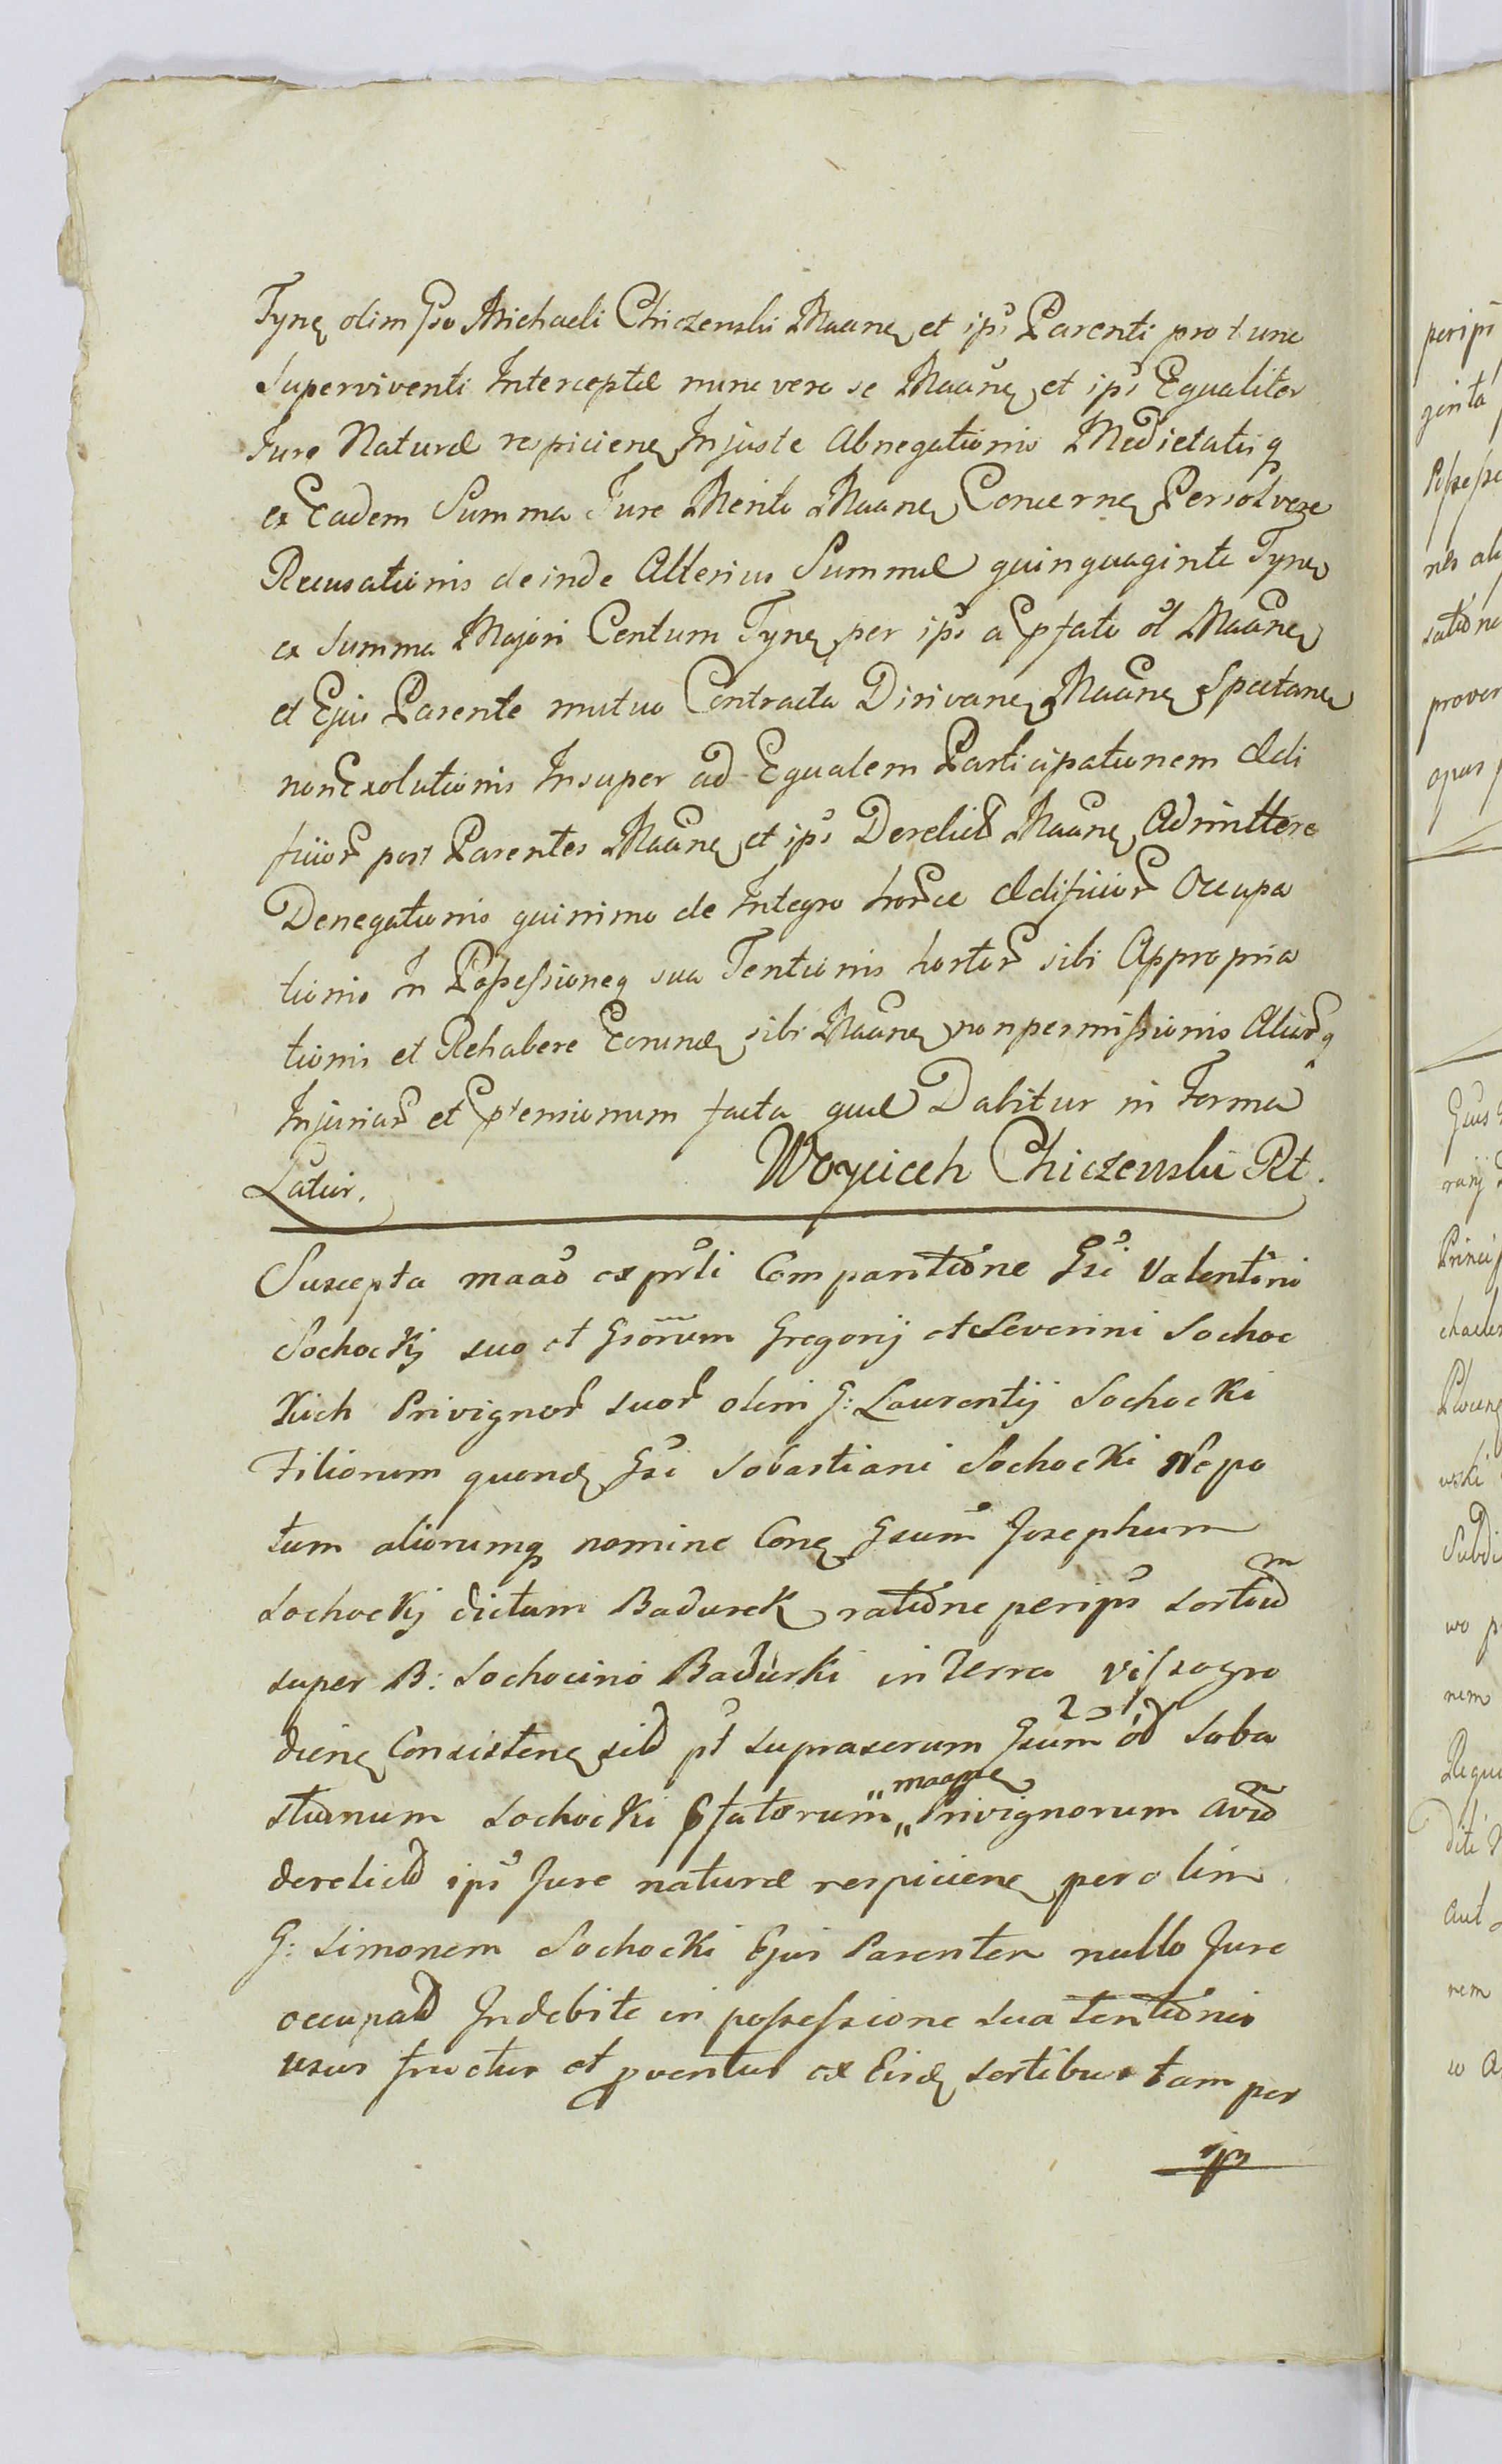 Tyne olim Gso Michaeli Chiczenski Maane et ips Parenti pro tunc
Superviventi Interceptæ nunc vero se Maane et ips Equaliter
Jure Naturæ respiciene Injuste Abnegationis Medietatisq
ex Eadem Summa Jure Merito Maane Concerne Persolvere
Recusationis deinde Alterius Summæ quinquaginta Tyne
ex Summa Majori Centum Tyne per ips a Pfato ol Maane
et Ejus Parente mutuo Contracta Dirivane Maane Spectane
non Exolutionis Insuper ad Equalem Participationem Ædi
ficior post Parentes Maane et ips Derelict Maane Admittere
Denegationis quinimo de Integro horce Ædificior Occupa
tionis In Possessioneq sua Tentionis hortor sibi Appropria
tionis et Rehabere Eorund sibi Maane non permissionis Aliarq
Injuriar et Ptensionum facta quæ Dabitur in Forma
Latius. Woyciech Chiczewski Rt.
Suscepta maao ex prli Comparitione Gsi Valentini
Sochockij suo et Gsorum Gregorij et Severini Sochoc
kich Privignor suor olim G: Laurentij Sochocki
Filiorum quond Gsi Sobastiani Sochocki Nepo
tum aliorumq nomine Cone Gsum Josephum
Sochockij dictum Badurek ratione perips sortium
super B: Sochocino Badurki in Terra Vissogro
diene Consistene sid pt supraserum Gsum od Soba
stianum Sochocki Pfatorum " maane " Privignorum avum
derelict ips Jure naturæ respiciene per olim
G: Simonem Sochocki Ejus Parentem nullo Jure
occupat Indebite in possessione sua tentionis
usus fructus et pventus ex Eisd sortibus tam per
ips
peripi
ginta
Possess
nes ali
satione
prover
opus
Gsus
Princi
chaeler
wski
Subdi
wo p
nem
Requi
diti
aut
rem